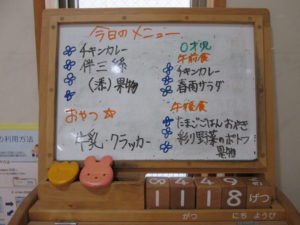 今日のメニュー
チキンカレー
伴三絲
(添)果物
おやつ
牛乳・クラッカー
0才児
午前食
チキンカレー
春雨サラダ
午後食
たまごごはんおやき
彩り野菜のポトフ
果物
の利用方法
11 18 げつ
がつ にち ようび